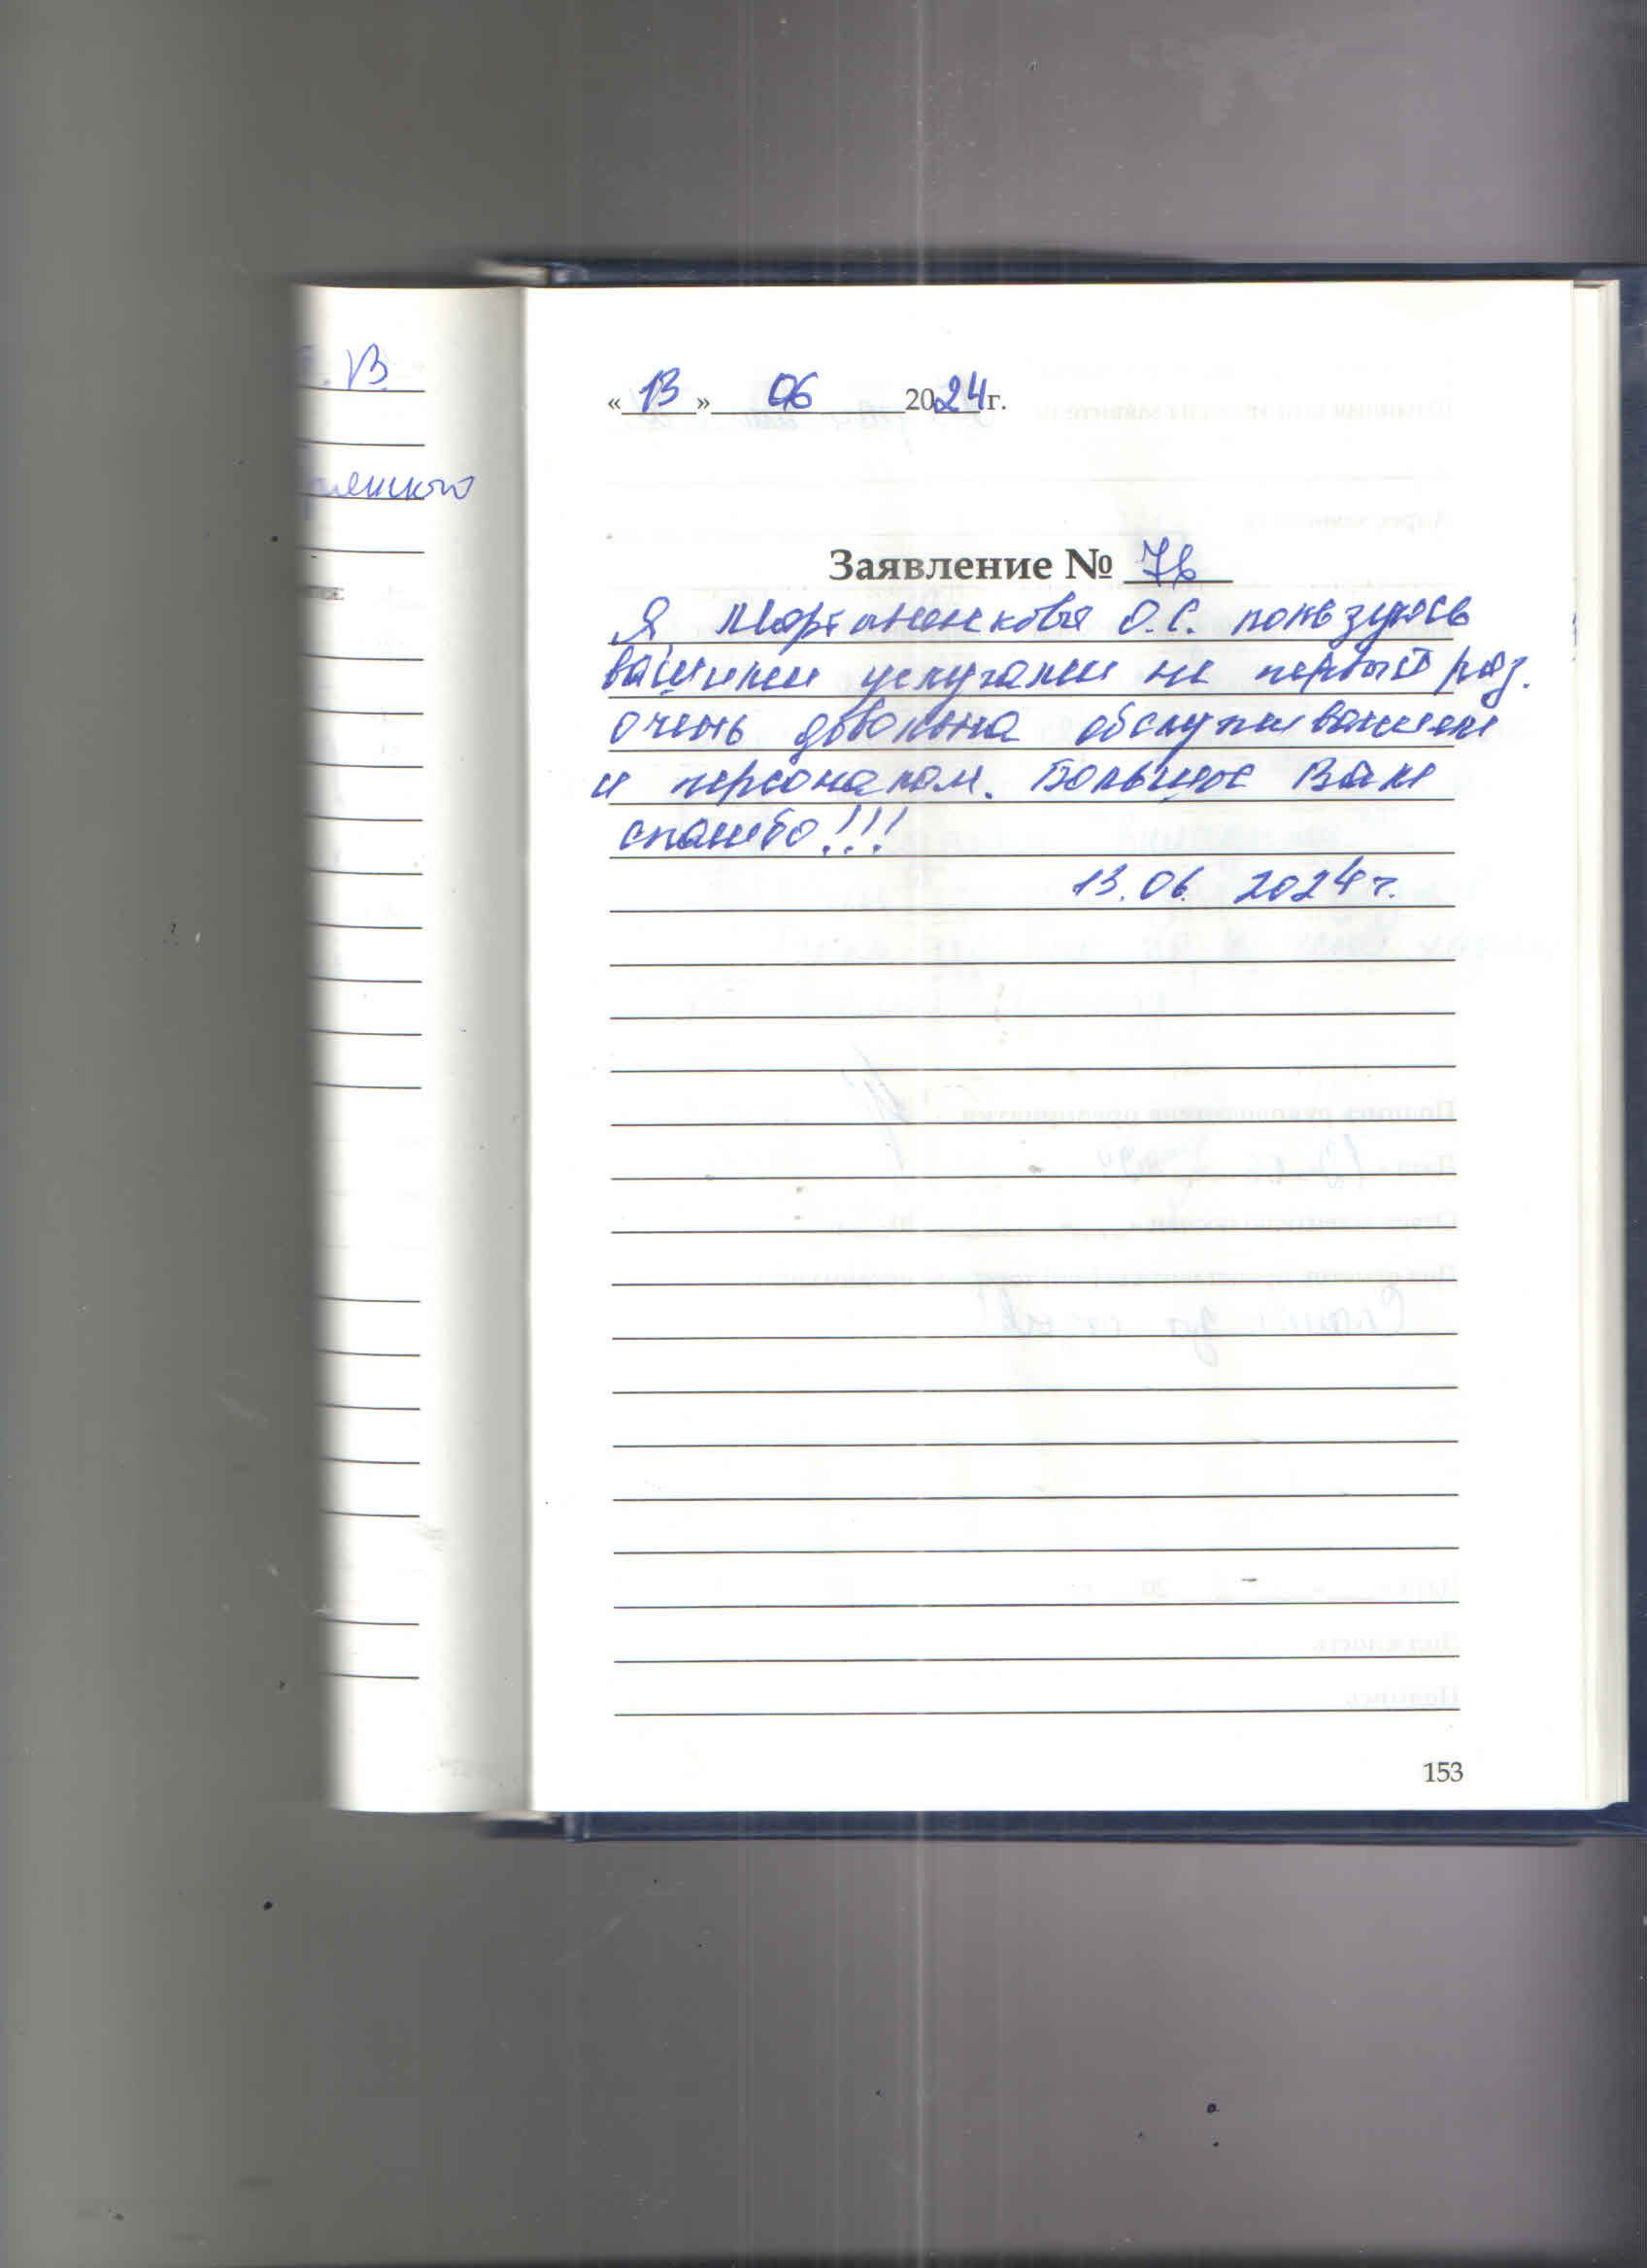 В.
«13» 06 2024 г.
Заявление № 76
Я, Мартыненкова О.С. пользуюсь
вашими услугами не первый раз.
очень довольна обслуживанием
и персоналом. Большое Вам
спасибо!!!
13.06. 2024 г.
153